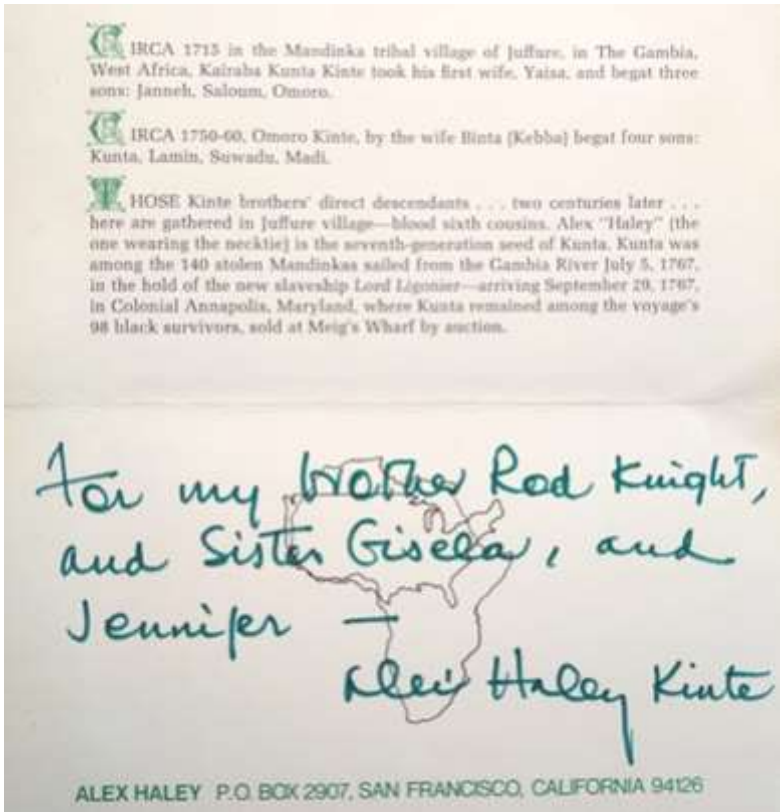 CIRCA 1715 in the Mandinka tribal village of Juffure, in The Gambia,
West Africa, Kairaba Kunta Kinte took his first wife, Yaisa, and begat three
sons: Janneh, Saloum, Omoro.
CIRCA 1750-60, Omoro Kinte, by the wife Binta (Kebba) begat four sons:
Kunta, Lamin, Suwadu, Madi.
THOSE Kinte brothers' direct descendants . . . two centuries later . . .
here are gathered in Juffure village—blood sixth cousins. Alex "Haley" (the
one wearing the necktie) is the seventh-generation seed of Kunta. Kunta was
among the 140 stolen Mandinkas sailed from the Gambia River July 5, 1767,
in the hold of the new slaveship Lord Ligonier—arriving September 29, 1767,
in Colonial Annapolis, Maryland, where Kunta remained among the voyage's
98 black survivors, sold at Meig's Wharf by auction.
For my brother Rod Knight,
and Sister Gisela, and
Jennifer —
Alex Haley Kinte
ALEX HALEY P.O. BOX 2907, SAN FRANCISCO, CALIFORNIA 94126